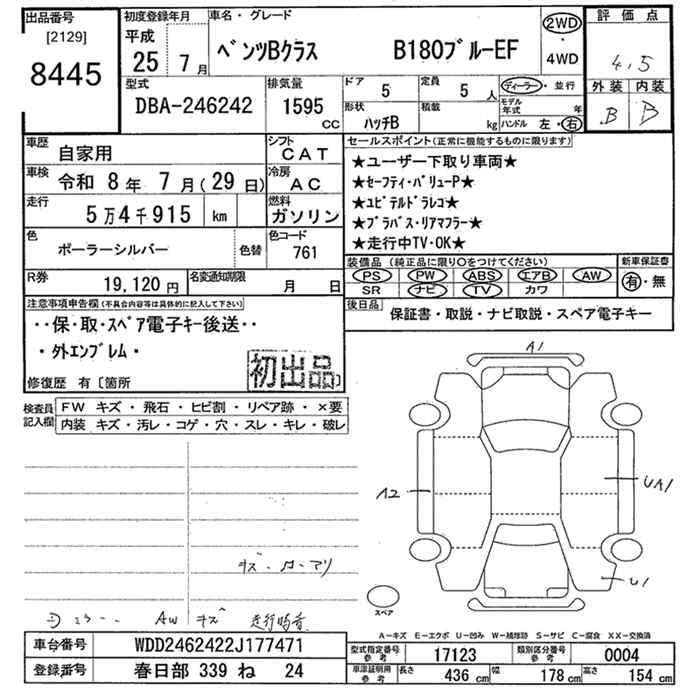 出品番号
[2129]
8445
初度登録年月
平成
25 7月
車名・グレード
ベンツBクラス B180ブルーEF
2WD
・
4WD
評価点
4.5
外装 内装
B B
型式
DBA-246242
排気量
1595
CC
ドア
5
定員
5 人
形状
ハッチB
積載
kg
ディーラー・並行
モデル年式 年
ハンドル 左・右
車歴
自家用
シフト
CAT
車検
令和 8年 7月(29日)
冷房
AC
走行
5万4千915 km
燃料
ガソリン
色
ポーラーシルバー
色替
色コード
761
R券
19,120円
名変通知期限
月 日
セールスポイント(正常に機能するものに限ります)
★ユーザー下取り車両★
★セーフティ・バリューP★
★ユピテルドラレコ★
★ブラバス・リアマフラー★
★走行中TV・OK★
装備品(純正品に限り○をつけてください)
PS PW ABS エアB AW
SR ナビ TV カワ
新車保証書
有・無
後日品
保証書・取説・ナビ取説・スペア電子キー
注意事項申告欄(不具合内容等は具体的に記入して下さい)
・・保・取・スペア電子キー後送・
・外エンブレム・
初出品
修復歴 有〔箇所
検査員記入欄
FW キズ・飛石・ヒビ割・リペア跡・×要
内装 キズ・汚レ・コゲ・穴・スレ・キレ・破レ
A1
A2
UA1
U1
スペア
AW キズ 走行時音
A-キズ E-エクボ U-凹み W-補修跡 S-サビ C-腐食 XX-交換済
車台番号
WDD2462422J177471
登録番号
春日部 339 ね 24
型式指定番号
参考
17123
類別区分番号
参考
0004
車庫証明用
参考
長さ
436 cm
幅
178 cm
高さ
154 cm